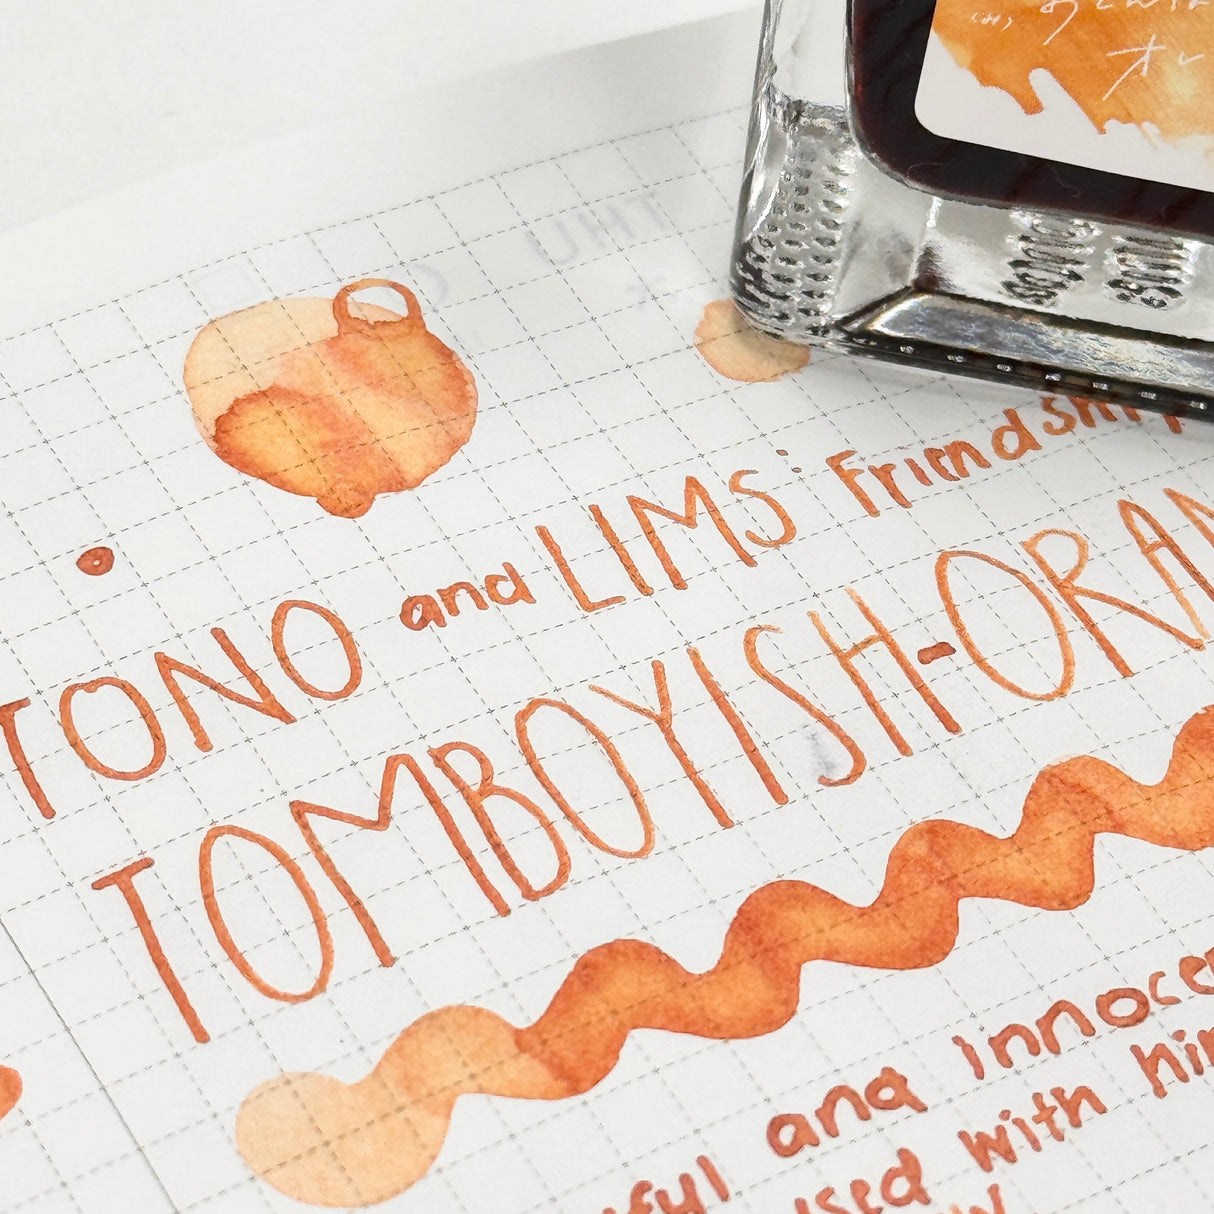 オレ
TONO and LIMS Friendship
TOMBOYISH-ORAN
ful and innocen
used with him